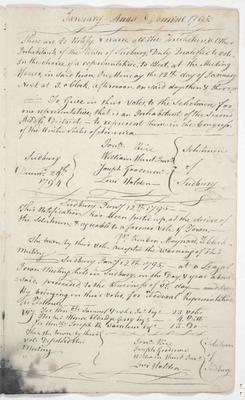 January Anno Domini 1795
These are to Notify & warn all the Freeholders & other
Inhabitants of the Town of Sudbury Duly Qualified to vote
In the choice of a representative, to Meet at the Meeting
House, in said Town on Monday the 12th day of January
Next at 2 o'clock afternoon on said day then & there
To Give in their votes, to the Selectmen, for
one representative, that is an Inhabitant of the Second
Middle District to represent them in the Congress
of the United States of America.
Sudbury
Decemr 29th
1794
Jonas Rice
William Hunt
Joseph Goodenow
Levi Holden
Selectmen
of
Sudbury
Sudbury Jany 12th 1795
This Notification has been Posted up at the desire of
the Selectmen, & agreeable to a former Vote of Town
Reuben Maynard
The town by their vote accepted the warning of this
Meeting
Sudbury Jany 12th 1795 at a Legal
Town Meeting held in Sudbury on the Day & year
said, proceeded to the Business of the day and
by bringing in their votes, for Federal Representative
as Follows
23 votes
For Honble Joseph B Varnum Esqr
The town by their
vote Dissolved this
Meeting
Jonas Rice
Joseph Goodenow
William Hunt
Levi Holden
Selectmen
of
Sudbury